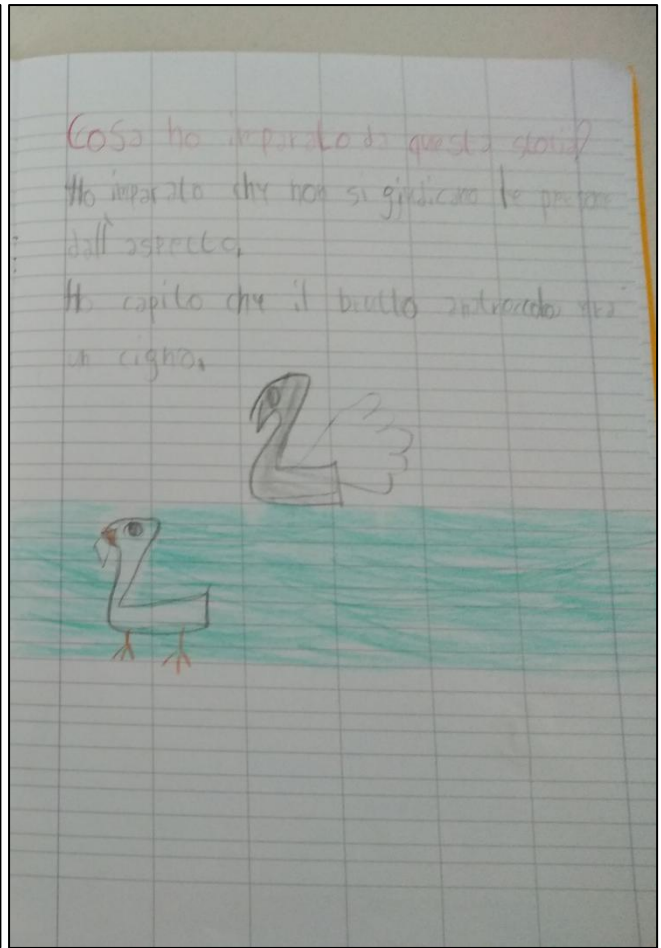 Cosa ho imparato da questa storia?
Ho imparato che non si giudicano le persone
dall'aspetto.
Ho capito che il brutto anatroccolo era
un cigno.